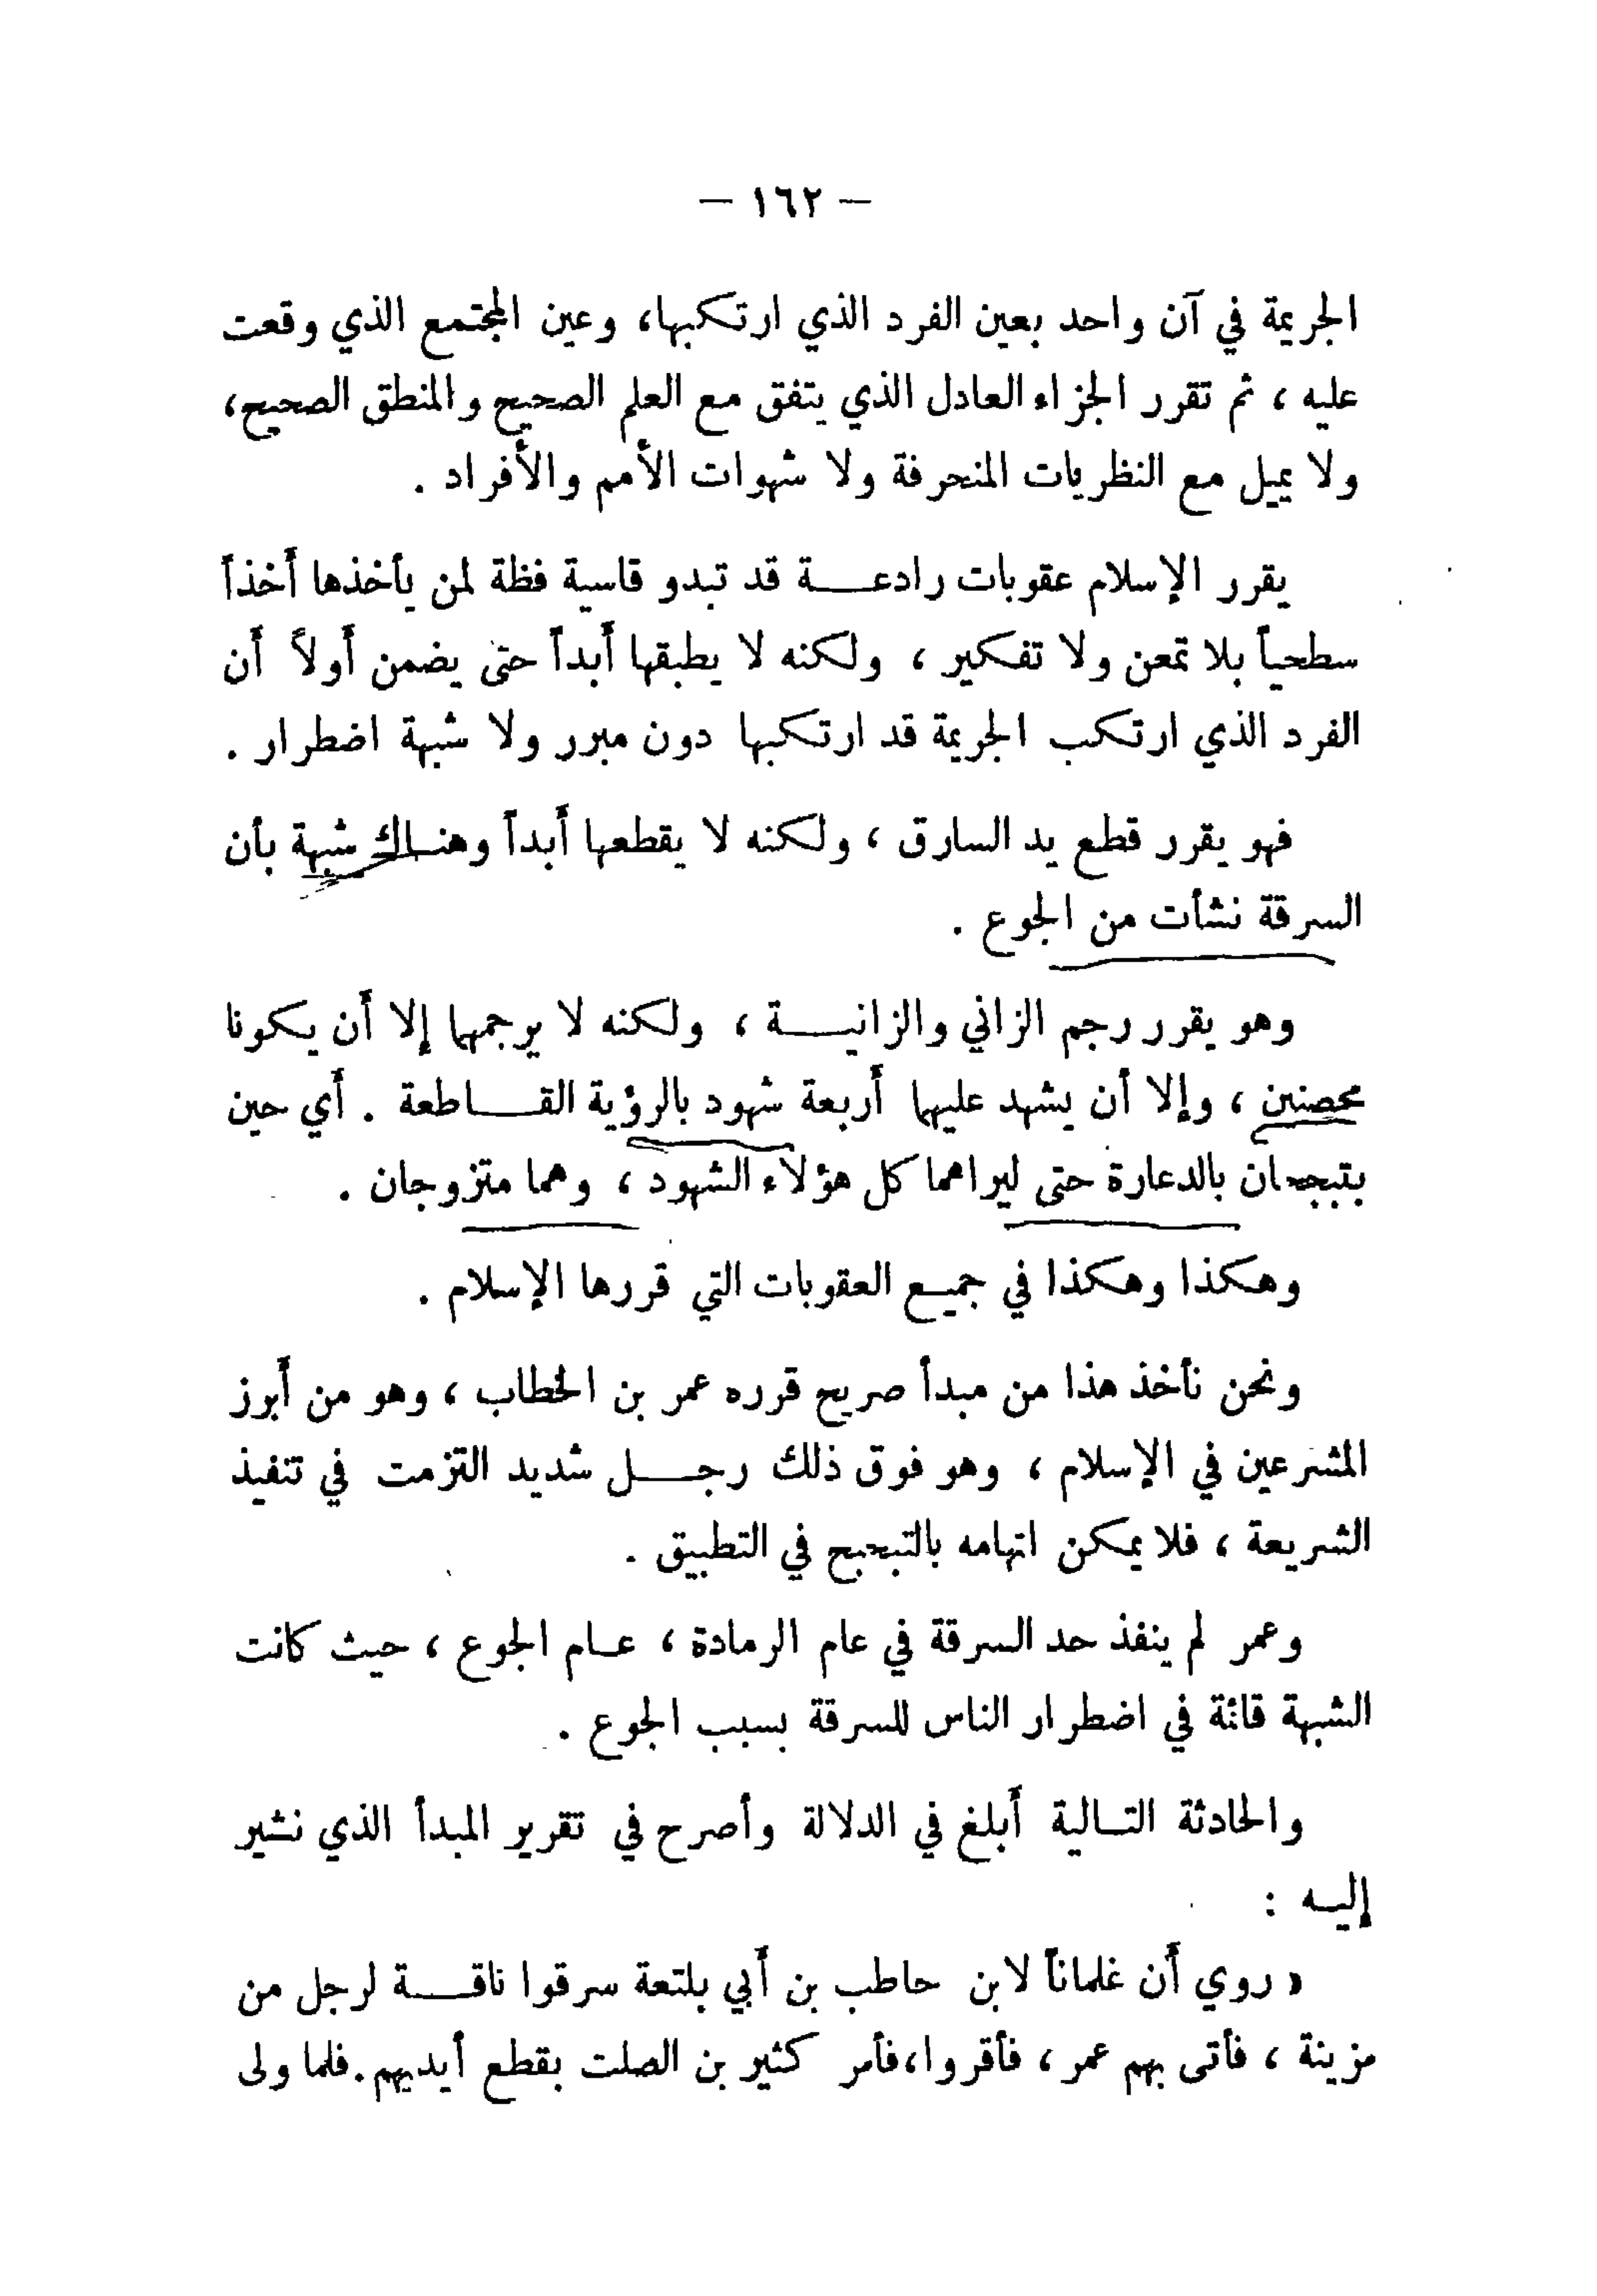 — ١٦٢ —
الجريمة في آن واحد بعين الفرد الذي ارتكبها، وعين المجتمع الذي وقعت
عليه ، ثم تقرر الجزاء العادل الذي يتفق مع العلم الصحيح والمنطق الصحيح،
ولا يميل مع النظريات المنحرفة ولا شهوات الأمم والأفراد .
يقرر الإسلام عقوبات رادعة قد تبدو قاسية فظة لمن يأخذها أخذاً
سطحياً بلا تمعن ولا تفكير ، ولكنه لا يطبقها أبداً حتى يضمن أولاً أن
الفرد الذي ارتكب الجريمة قد ارتكبها دون مبرر ولا شبهة اضطرار .
فهو يقرر قطع يد السارق ، ولكنه لا يقطعها أبداً وهناك شبهة بأن
السرقة نشأت من الجوع .
وهو يقرر رجم الزاني والزانية ، ولكنه لا يرجمهما إلا أن يكونا
محصنين ، وإلا أن يشهد عليهما أربعة شهود بالرؤية القاطعة . أي حين
يتبجحان بالدعارة حتى ليراهما كل هؤلاء الشهود ، وهما متزوجان .
وهكذا وهكذا في جميع العقوبات التي قررها الإسلام .
ونحن نأخذ هذا من مبدأ صريح قرره عمر بن الخطاب ، وهو من أبرز
المشرعين في الإسلام ، وهو فوق ذلك رجل شديد التزمت في تنفيذ
الشريعة ، فلا يمكن اتهامه بالتبحبح في التطبيق .
وعمر لم ينفذ حد السرقة في عام الرمادة ، عام الجوع ، حيث كانت
الشبهة قائمة في اضطرار الناس للسرقة بسبب الجوع .
والحادثة التالية أبلغ في الدلالة وأصرح في تقرير المبدأ الذي نشير
إليه :
« روي أن غلماناً لابن حاطب بن أبي بلتعة سرقوا ناقة لرجل من
مزينة ، فأتى بهم عمر ، فأقروا،فأمر كثير بن الصلت بقطع أيديهم.فلما ولى